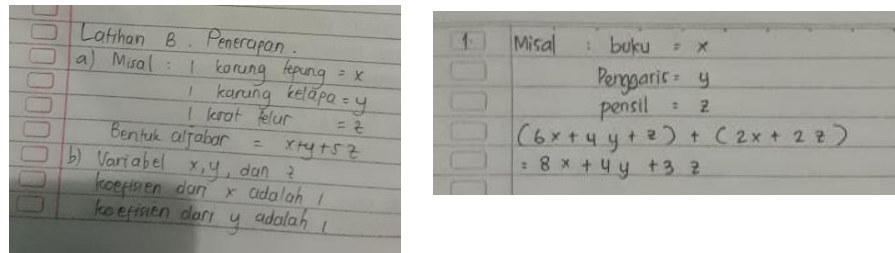 Latihan B. Penerapan.
a) Misal : 1 karung tepung = x
1 karung kelapa = y
1 krat telur = z
Bentuk aljabar = x+y+5z
b) Variabel x, y, dan z
koefisien dari x adalah 1
koefisien dari y adalah 1
1. Misal : buku = x
Penggaris = y
pensil = z
(6x + 4y + z) + (2x + 2z)
= 8x + 4y + 3z